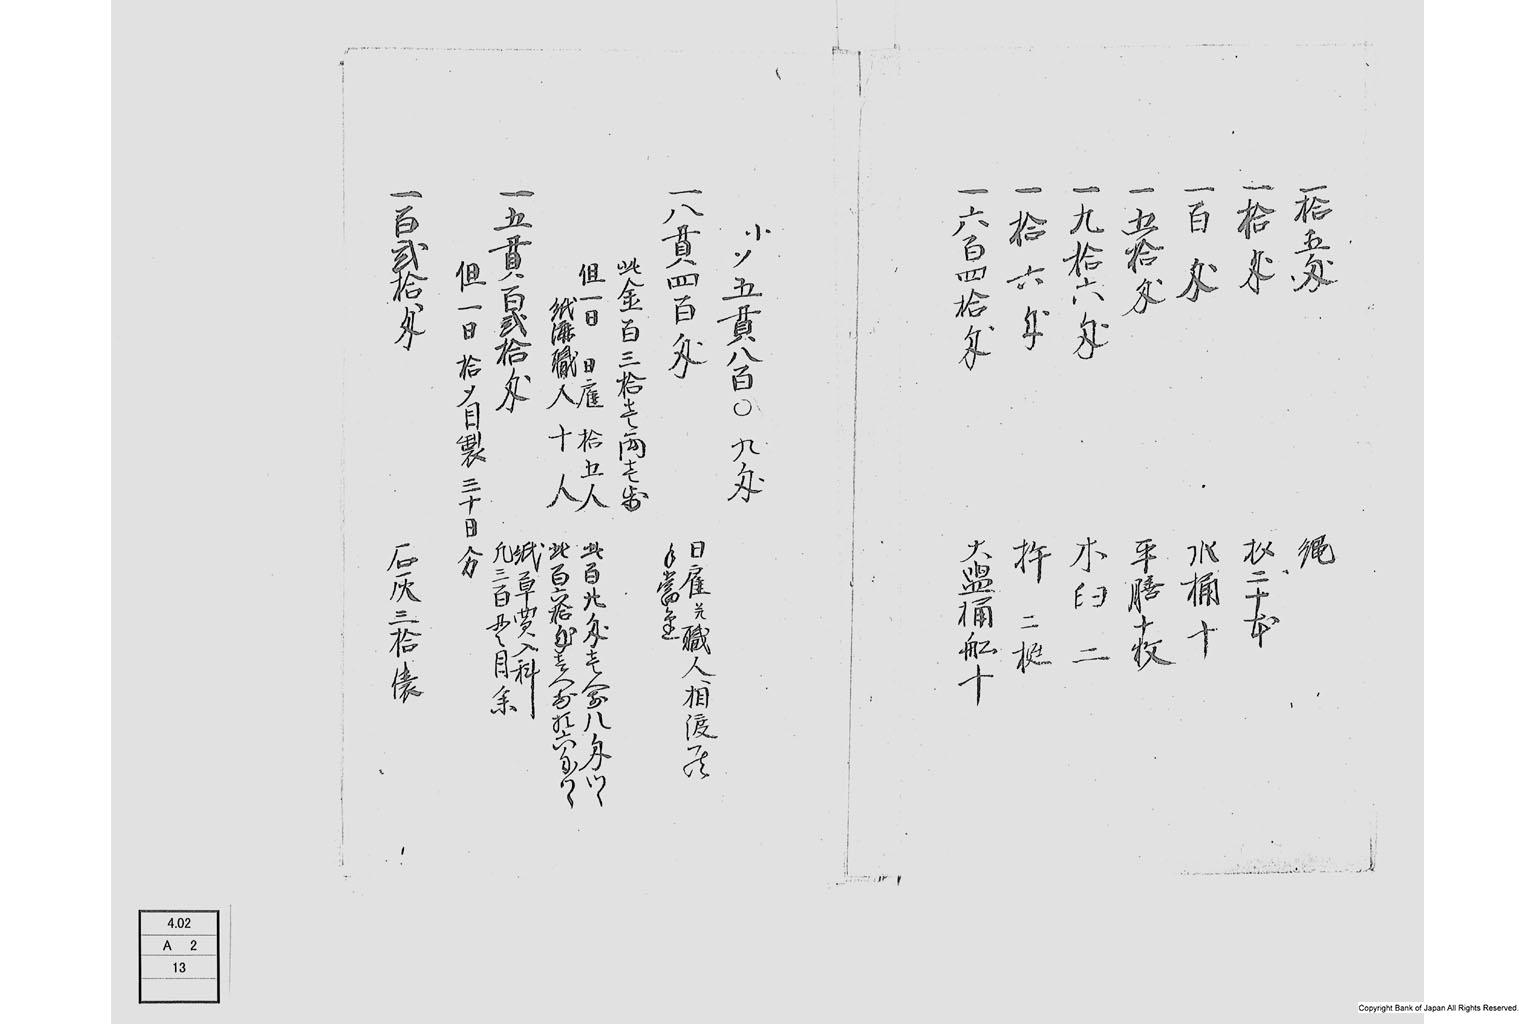 一拾五匁 縄
一拾匁 杁二十本
一百匁 水桶十
一五拾匁 平膳十枚
一九拾六匁 木臼二
一拾六匁 杵二梃
一六百四拾匁 大盥桶舩十
小〆五貫八百〇九匁
一八貫四百匁 日雇並職人相渡
手當金
此金百三拾壱両壱歩
但一日日雇拾五人 此百廿匁壱人前八匁ツヽ
紙漉職人十人 此百六拾匁壱人前拾六匁ツヽ
一五貫百弐拾匁 紙草買入科
凡三百貫目余
但一日拾〆目製三十日分
一百弐拾匁 石灰三拾俵
4.02
A 2
13
Copyright Bank of Japan All Rights Reserved.